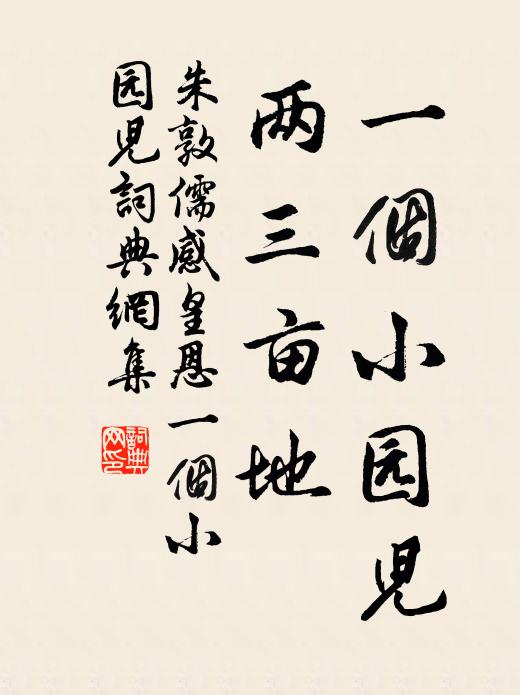 一個小园児
两三亩地
朱敦儒感皇恩一個小
园児詞典網集
詞典
网印